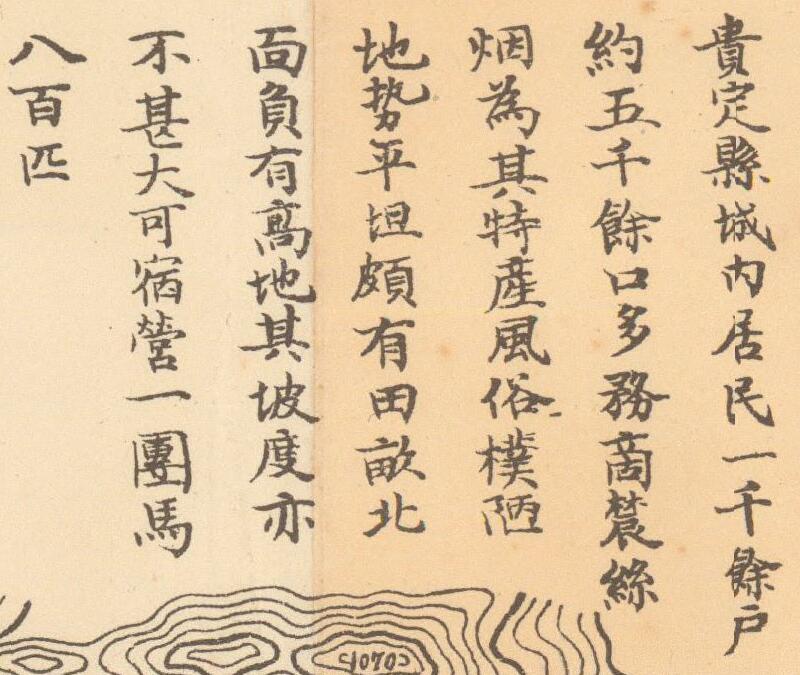 貴定縣城内居民一千餘戶
約五千餘口多務商農絲
烟為其特產風俗樸陋
地势平坦頗有田畝北
面負有高地其坡度亦
不甚大可宿營一團馬
八百匹
1070